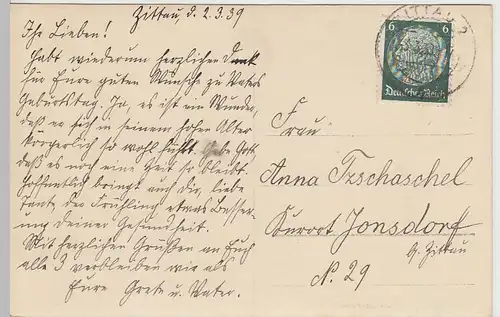 Zittau d. 2.3.39
Ihr Lieben!
Habt wiederum herzlichen Dank
für Eure guten Wünsche zu Vaters
Geburtstag. Ja, es ist ein Wunder,
daß er sich in seinem hohen Alter
körperlich so wohl fühlt. Gebe Gott,
daß es noch eine Zeit so bleibt.
Hoffentlich bringt auch dir, liebe
Tante, der Frühling etwas Besser-
ung deiner Gesundheit.
Mit herzlichen Grüßen an Euch
alle 3 verbleiben wir als
Eure Grete u. Vater.
ZITTAU 2
6 6
Deutsches Reich
Frau
Anna Tzschaschel
Kurort Jonsdorf
b. Zittau
N. 29